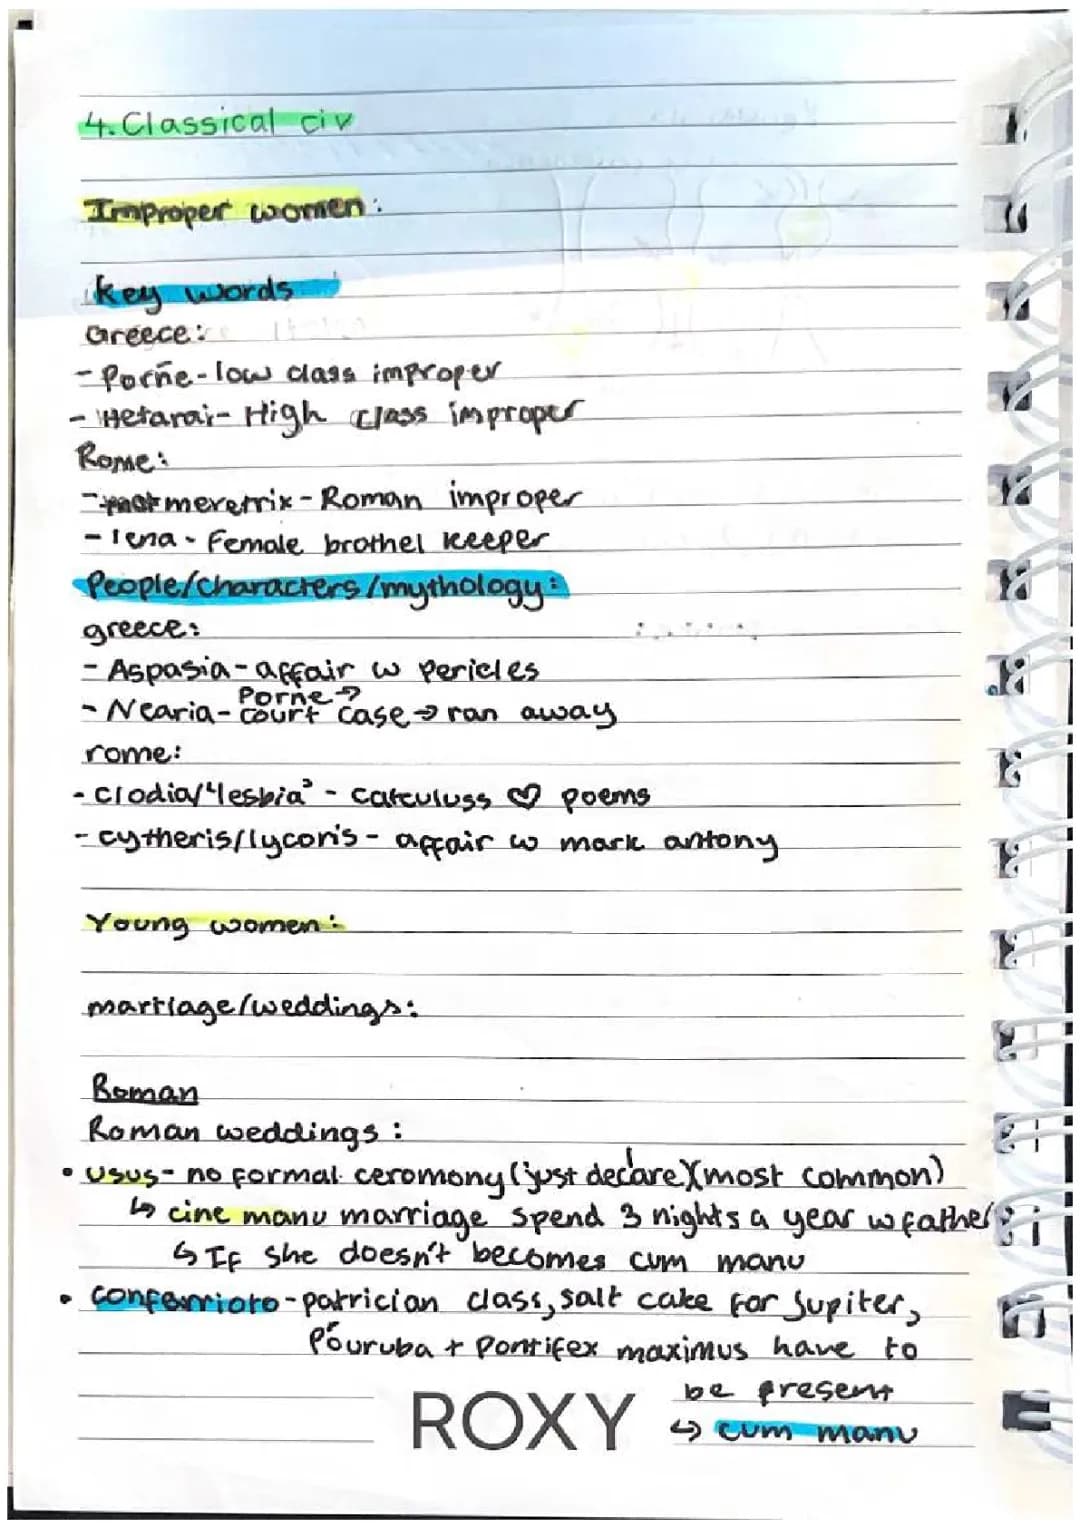 4. Classical civ
Improper women:
key words
Greece:
- Porñe - low class improper
- Hetarai - High class improper
Rome:
- meretrix - Roman improper
- lena - Female brothel keeper
People/characters/mythology:
greece:
- Aspasia - affair w Pericles
Porne →
- Nearia - court case → ran away
rome:
- clodia/"lesbia" - catculuss ♡ poems
- cytheris/lycoris - affair w mark antony
Young women:
marriage/weddings:
Roman
Roman weddings:
• usus - no formal ceromony (just declare) (most common)
↳ cine manu marriage spend 3 nights a year w father
↳ If she doesn't becomes cum manu
• confarrioto - patrician class, salt cake for Jupiter,
Póuruba + Pontifex maximus have to
be present
ROXY
↳ cum manu